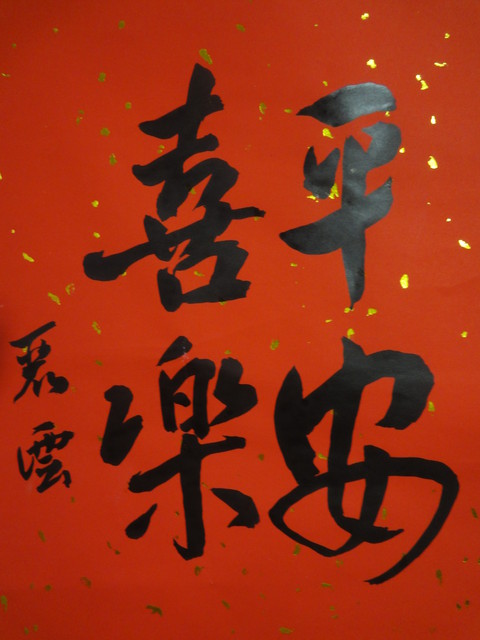 平安
喜樂
雲